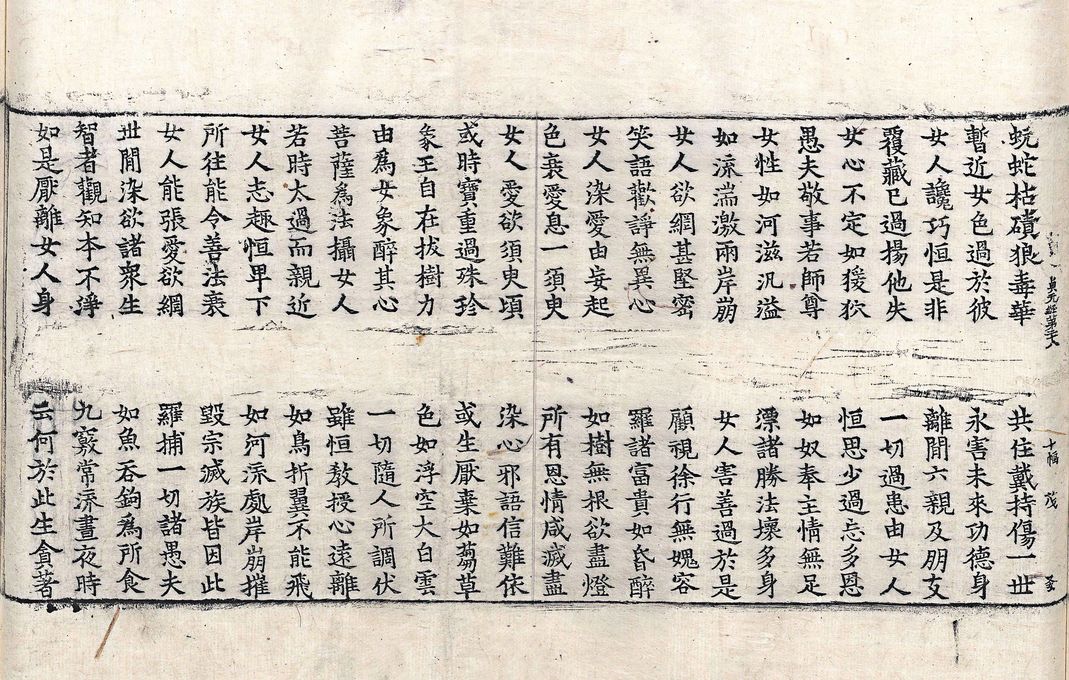 蚖蛇枯磧狼毒華　共住戴持傷一世
十幅　茂
暫近女色過於彼　永害未來功德身
女人讒巧恒是非　離間六親及朋友
覆藏已過揚他失　一切過患由女人
女心不定如猨狖　恒思少過忘多恩
愚夫敬事若師尊　如奴奉主情無足
女性如河滋汎溢　漂諸勝法壞多身
如流湍激兩岸崩　女人害善過於是
女人欲網甚堅密　顧視徐行無媿容
笑語歡諍無異心　羅諸富貴如昏醉
女人染愛由妄起　如樹無根欲盡燈
色衰愛息一須臾　所有恩情咸滅盡
女人愛欲須臾頃　染心邪語信難依
或時寶重過珠珍　或生厭棄如芻草
象王自在拔樹力　色如浮空大白雲
由爲女象醉其心　一切隨人所調伏
菩薩爲法攝女人　雖恒教授心遠離
若時太過而親近　如鳥折翼不能飛
女人志趣恒卑下　如河流處岸崩摧
所往能令善法衰　毀宗滅族皆因此
女人能張愛欲網　羅捕一切諸愚夫
世間染欲諸衆生　如魚吞鉤爲所食
智者觀知本不淨　九竅常流晝夜時
如是厭離女人身　云何於此生貪著